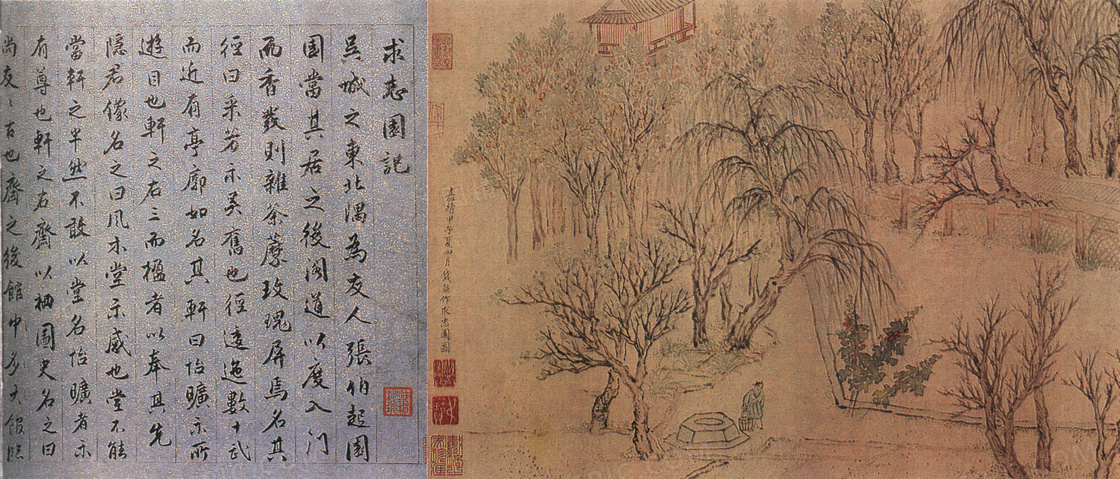 求志園記
吳城之東北隅為友人張伯起園
園當其居之後閣道以度入門
而香發則雜荼蘪玫瑰屏焉名其
徑曰采芳示吳舊也徑逶迤數十武
而近有亭廓如名其軒曰怡曠示所
遊目也軒之右三而楹者以奉其先
隱君像名之曰風木堂示感也堂不能
當軒之半然不敢以堂名怡曠者示
有尊也軒之右齋以栖圖史名之曰
尚友〻古也齋之後館
嘉靖甲子夏四月錢穀作求志園圖